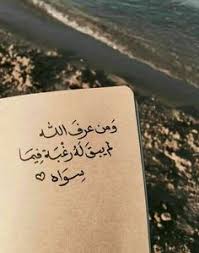 وَمن عرفَ الله
لم يبقَ لهُ رغْبة فِيمَا
سِوَاه ♡